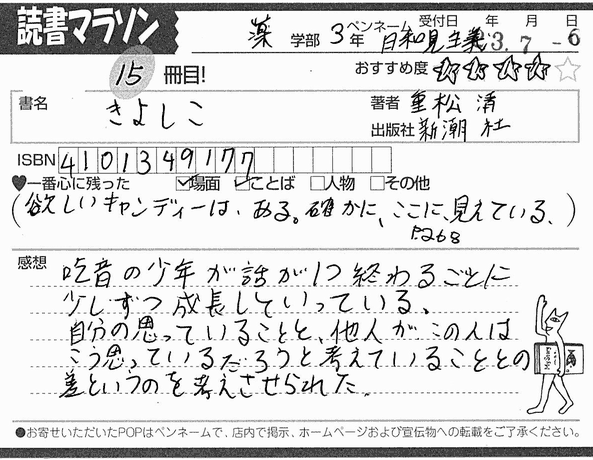 読書マラソン
薬 学部 3年 ペンネーム 日和見主義 受付日 年 月 日 3.7-6
15 冊目! おすすめ度 ★★★★☆
書名 きよしこ 著者 重松 清
出版社 新潮社
ISBN 4101349177
♥一番心に残った ☑場面 ☑ことば □人物 □その他
(欲しいキャンディーは、ある。確かに、ここに、見えている、)
P.268
感想
吃音の少年が話が1つ終わるごとに
少しずつ成長していっている、
自分の思っていることと、他人がこの人は
こう思っているだろうと考えていることとの
差というのを考えさせられた.
●お寄せいただいたPOPはペンネームで、店内で掲示、ホームページおよび宣伝物への転載をご了承ください。